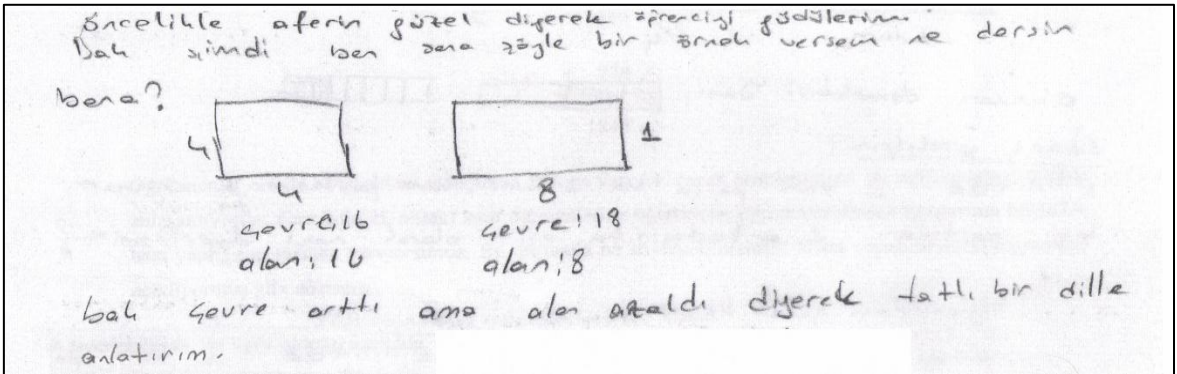 öncelikle aferin güzel diyerek öğrenciyi güdülerim.
Bak şimdi ben sana şöyle bir örnek versem ne dersin
bana?
4 1
4 8
Çevre;16 Çevre - 18
alan; 16 alan; 8
bak çevre arttı ama alan azaldı diyerek tatlı bir dille
anlatırım.